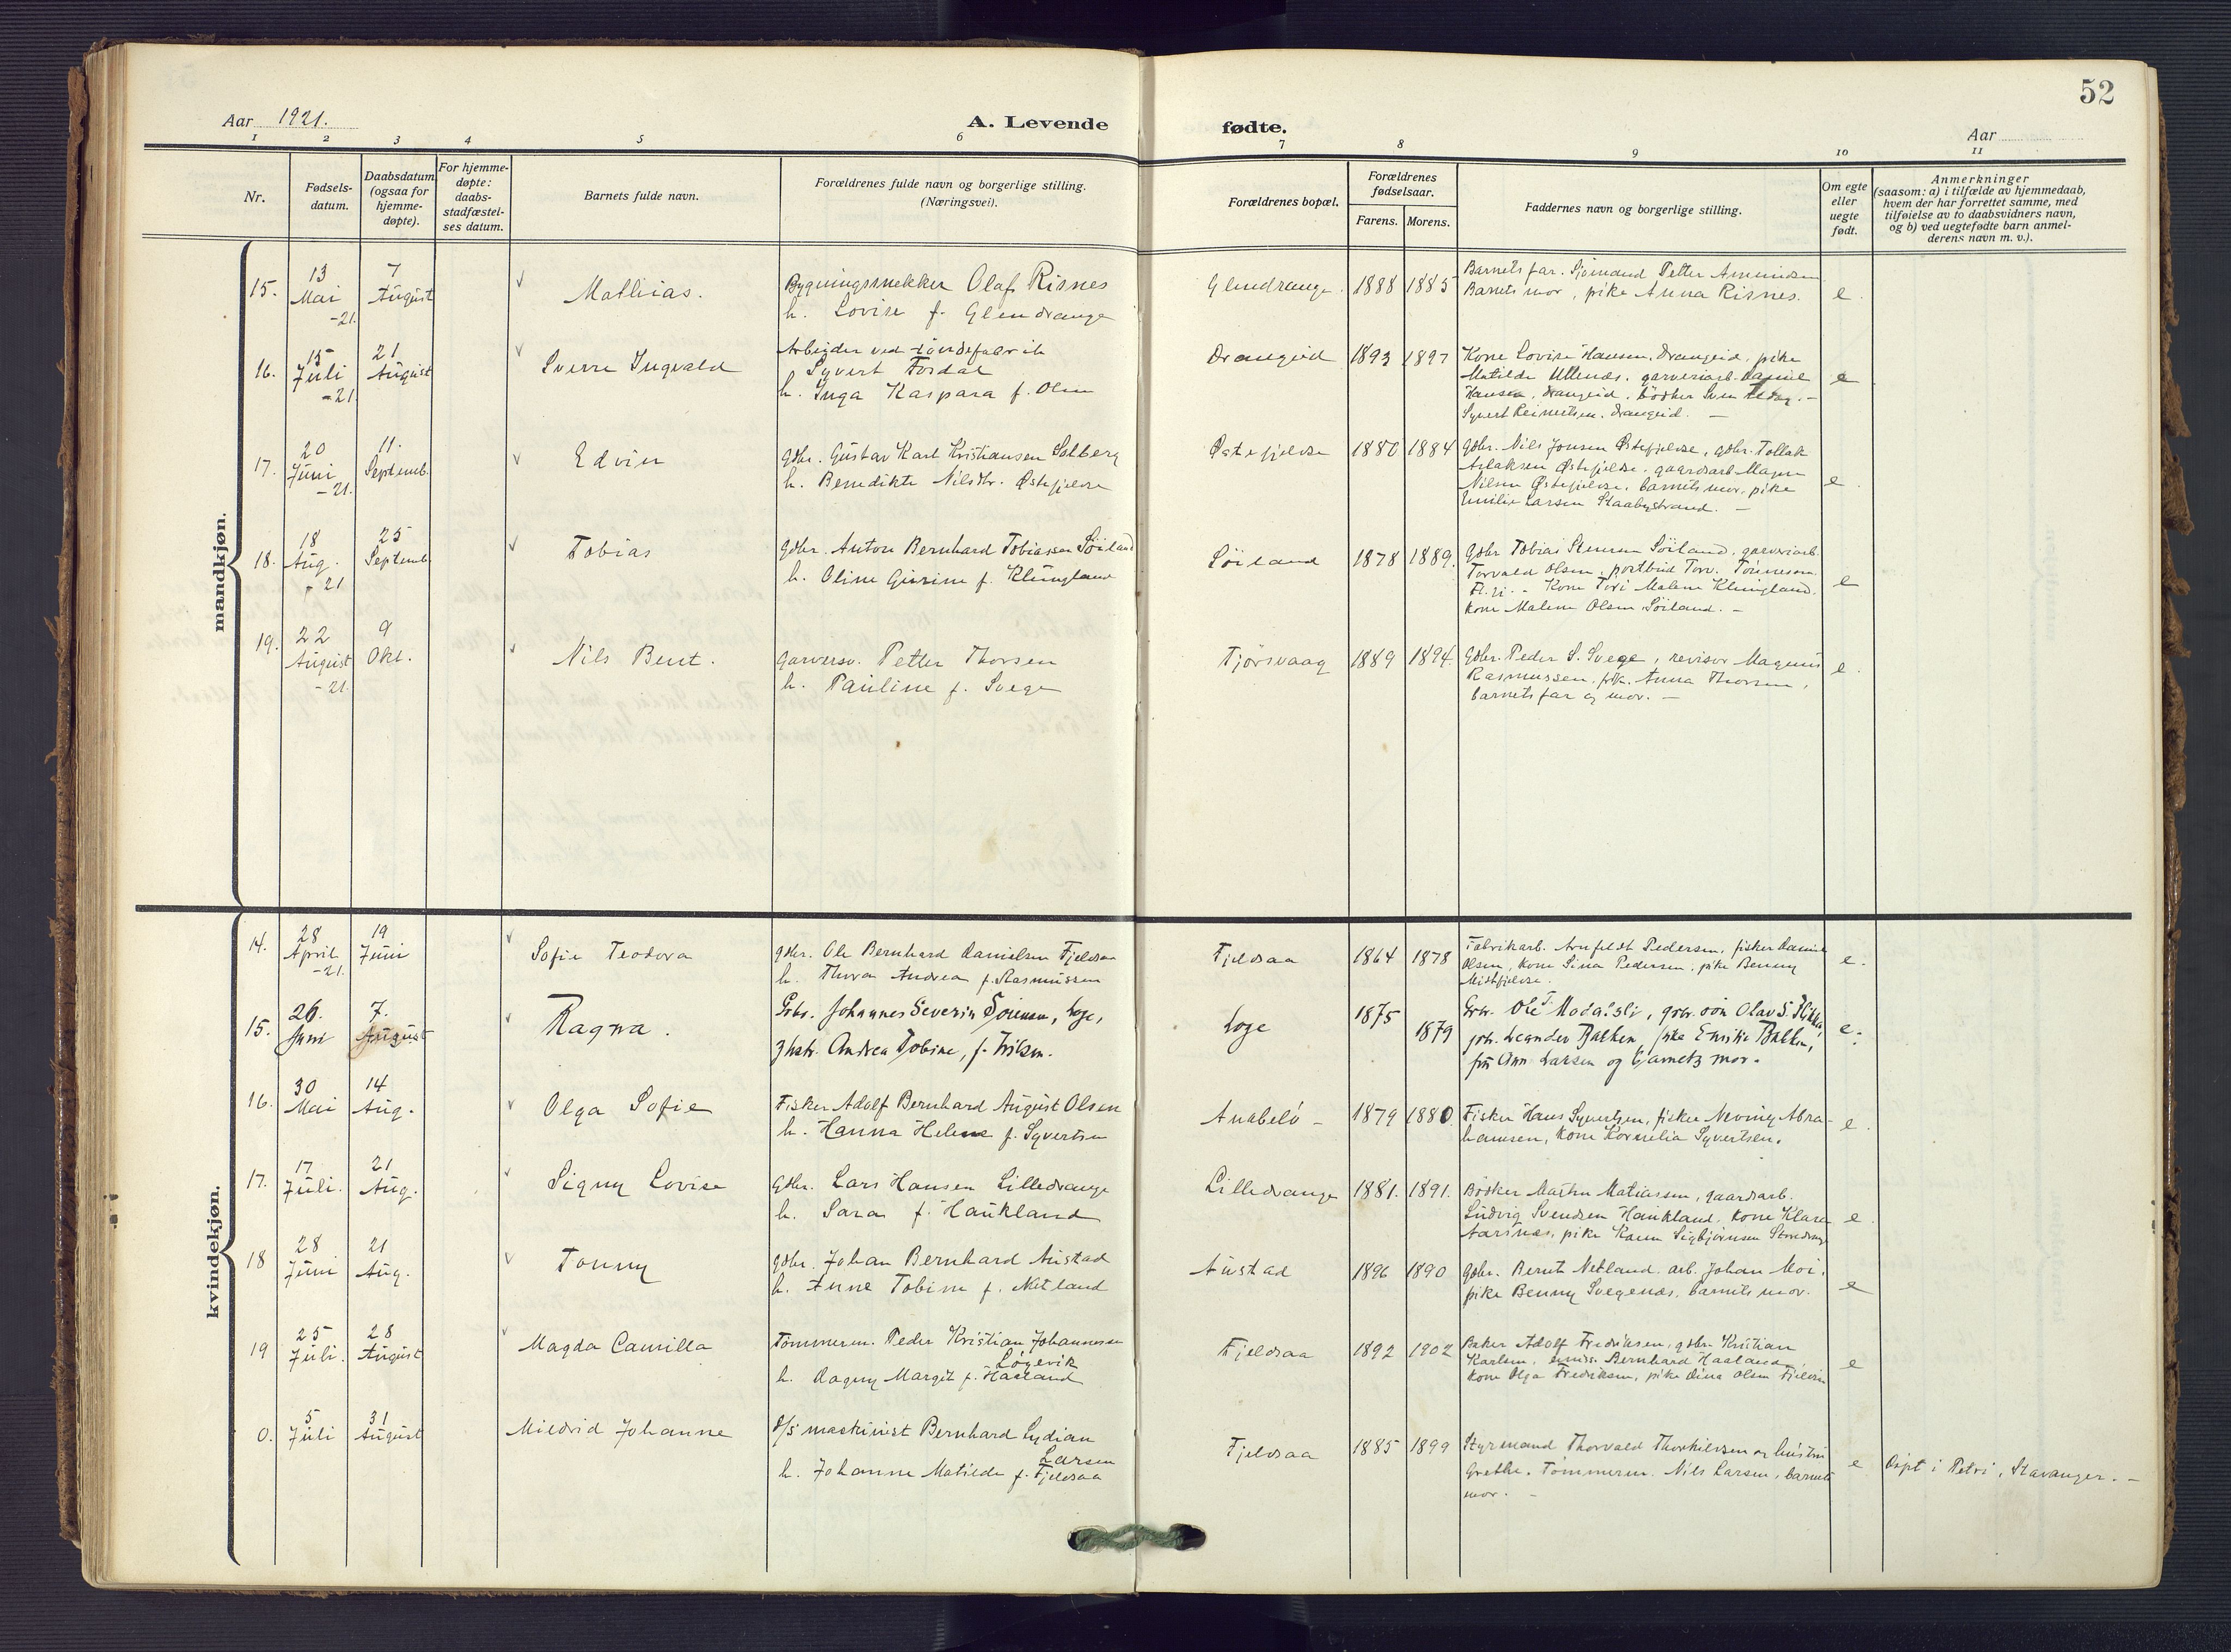 52
Aar 1921.
A. Levende
fødte.
Aar
1 2 3 4 5 6 7 8 9 10 11
Nr.
Fødsels-
datum.
Daabsdatum
(ogsaa for
hjemme-
døpte).
For hjemme-
døpte:
daabs-
stadfæstel-
ses datum.
Barnets fulde navn.
Forældrenes fulde navn og borgerlige stilling.
(Næringsvei).
Forældrenes bopæl.
Forældrenes
fødselsaar.
Farens. Morens.
Faddernes navn og borgerlige stilling.
Om egte
eller
uegte
født.
Anmerkninger
(saasom: a) i tilfælde av hjemmedaab,
hvem der har forrettet samme, med
tilføielse av to daabsvidners navn,
og b) ved uegtefødte barn anmel-
derens navn m. v.).
mandkjøn.
15.
13
Mai
-21.
7
August
Mathias.
Bygningssnekker Olaf Risnes
h. Lovise f. Glendrange
Glendrange.
1888 1885
Barnets far. Sjømand Petter Amundsen
Barnets mor, pike Anna Risnes.
e.
16.
15
Juli
-21.
21
August
Sverre Ingvald
Arbeider ved tøndefabrik
Syvert Fordal
h. Inga Kaspara f. Olsen
Drangeid
1893 1897
Kone Lovise Hansen, Drangeid, pike
Matilde Ullenes, garveriarb. Daniel
Hansen, Drangeid, bødker Sven
Syvert Reinertsen, Drangeid. -
e
17.
20
Juni
-21.
11.
Septemb.
Edvin
Gdbr. Gustav Karl Kristiansen Solberg
h. Benedikte Nilsdtr. Østefjelde
Østefjelde
1880 1884
Gdbr. Nils Jonsen Østefjelde, gdbr. Tollak
Aslaksen Østefjelde, gaardsarb. Magne
Nilsen Østefjelde, barnets mor, pike
Emilie Larsen Staabystrand. -
e.
18.
18
Aug.
-21
25
Septemb.
Tobias
Gdbr. Anton Bernhard Tobiassen Söiland
h. Oline Gurine f. Klungland
Söiland
1878 1889.
Gdbr Tobias Stensen Söiland, garveriarb.
Torvald Olsen, postbud Torv. Tönnesen
Kone Tori Malene Klungland.
kone Malene Olsen Söiland. -
e
19.
22
August
-21.
9
Okt.
Nils Bent.
Garversv. Petter Thorsen
h. Pauline f. Svege
Tjörsvaag
1889 1894.
Gdbr. Peder S. Svege, revisor Magnus
Rasmussen, frk. Anna Thorsen,
barnets far og mor. -
e.
kvindekjøn.
14.
28
April
-21.
19
Juni
Sofie Teodora
gdbr. Ole Bernhard Danielsen Fjeldsaa
h. Thora Andrea f. Rasmussen
Fjeldsaa
1864 1878
Fabrikarb. Arnfeldt Pedersen, fisker Daniel
Olsen, kone Sina Pedersen, pike Benny
Midtfjelde.
e.
15.
26.
Juni
7.
August
Ragna.
Gdbr. Johannes Severin Sörensen, Loge,
Hstr. Andrea Tobine, f. Nilsen.
Loge
1875
1879
Gdbr. Ole T. Modalsli, gdbr. sön Olav S.
gdbr. Leander Bakken, pike Emilie Bakken,
frü Ann Larsen og barnets mor.
e.
16.
30
Mai
14
Aug.
Olga Sofie
Fisker Adolf Bernhard August Olsen
h. Hanna Helene f. Syvertsen
Anabelö -
1879 1880
Fisker Hans Syvertsen, fisker Meving Abra-
hamsen, kone Kornelia Syvertsen.
e.
17.
17
Juli.
21
Aug.
Signy Lovise
gdbr. Lars Hansen Lilledrange
h. Sara f. Haukland
Lilledrange
1881. 1891.
Bödker Martin Matiassen, gaardsarb.
Ludvig Svendsen Haukland, kone Klara
Aarsnes, pike Karen Sigbjörnsen Storedrange
e.
18
28
Juni
21
Aug.
Tonny
gdbr. Johan Bernhard Austad
h. Anne Tobine f. Netland
Austad
1896 1890
gdbr. Bernt Netland, arb. Johan Moi,
pike Benny Svegenes, barnets mor.
e
19
25
Juli.
28
August
Magda Camilla
Tömmerm. Peder Kristian Johannesen
Lögevik
h. Dagny Margit f. Haaland
Fjeldsaa
1892 1902
Baker Adolf Fredriksen, gdbr. Kristian
Karlsen, emiss. Bernhard Haaland,
kone Olga Fredriksen, pike Dina Olsen
e
0.
5
Juli
31
August
Mildrid Johanne
D/S maskinist Bernhard Lydian
Larsen
h. Johanne Matilde f. Fjeldsaa
Fjeldsaa
1885 1899
Styrmand Thorvald Thorkildsen og hustru
Grethe. Tömmerm. Nils Larsen, barnets
mor. -
e
Döpt i Petri, Stavanger. -